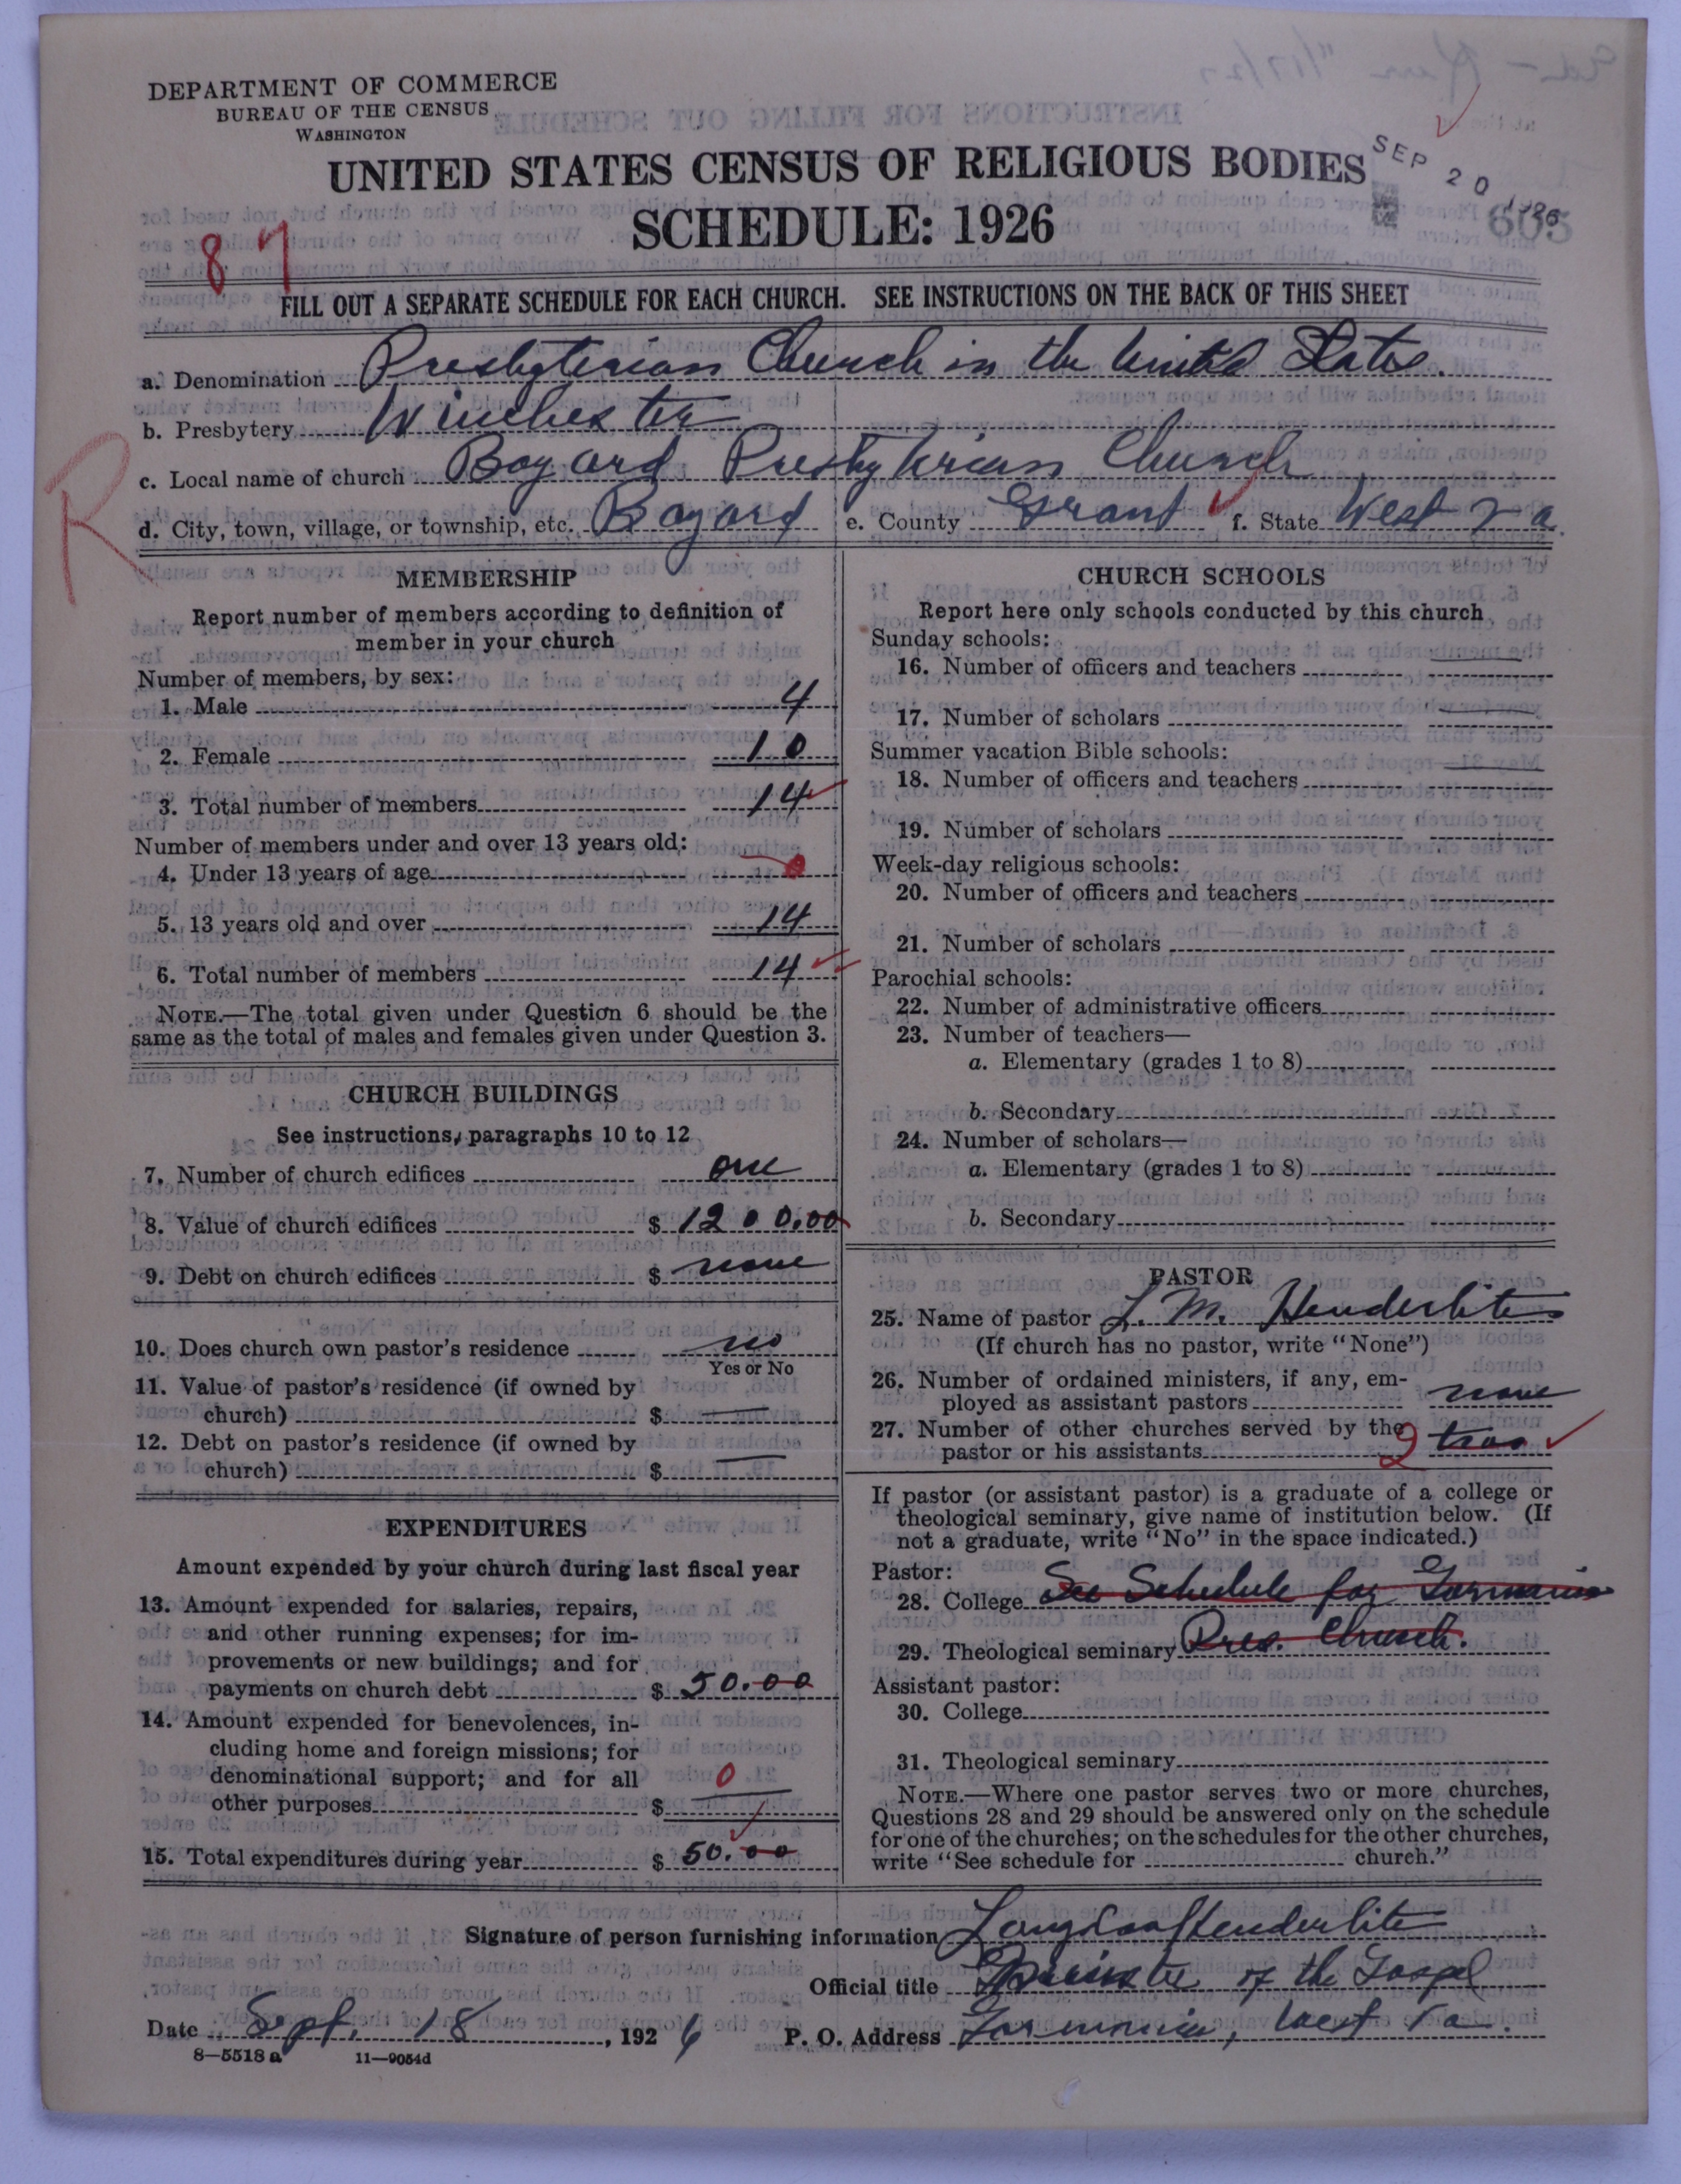 DEPARTMENT OF COMMERCE
BUREAU OF THE CENSUS
WASHINGTON
UNITED STATES CENSUS OF RELIGIOUS BODIES
SCHEDULE: 1926
SEP 20 1926
605
87
FILL OUT A SEPARATE SCHEDULE FOR EACH CHURCH. SEE INSTRUCTIONS ON THE BACK OF THIS SHEET
R
a. Denomination Presbyterian Church in the United States.
b. Presbytery Winchester
c. Local name of church Bayard Presbyterian Church
d. City, town, village, or township, etc. Bayard e. County Grant f. State West Va.
MEMBERSHIP
Report number of members according to definition of
member in your church
Number of members, by sex:
1. Male 4
2. Female 10
3. Total number of members 14
Number of members under and over 13 years old:
4. Under 13 years of age 0
5. 13 years old and over 14
6. Total number of members 14
NOTE.—The total given under Question 6 should be the
same as the total of males and females given under Question 3.
CHURCH BUILDINGS
See instructions, paragraphs 10 to 12
7. Number of church edifices one
8. Value of church edifices $ 1200.00
9. Debt on church edifices $ none
10. Does church own pastor's residence no
Yes or No
11. Value of pastor's residence (if owned by
church) $ —
12. Debt on pastor's residence (if owned by
church) $ —
EXPENDITURES
Amount expended by your church during last fiscal year
13. Amount expended for salaries, repairs,
and other running expenses; for im-
provements or new buildings; and for
payments on church debt $ 50.00
14. Amount expended for benevolences, in-
cluding home and foreign missions; for
denominational support; and for all
other purposes $ 0
15. Total expenditures during year $ 50.00
CHURCH SCHOOLS
Report here only schools conducted by this church
Sunday schools:
16. Number of officers and teachers —
17. Number of scholars —
Summer vacation Bible schools:
18. Number of officers and teachers —
19. Number of scholars
Week-day religious schools:
20. Number of officers and teachers
21. Number of scholars
Parochial schools:
22. Number of administrative officers
23. Number of teachers—
a. Elementary (grades 1 to 8)
b. Secondary
24. Number of scholars—
a. Elementary (grades 1 to 8)
b. Secondary
PASTOR
25. Name of pastor L. M. Henderlite
(If church has no pastor, write "None")
26. Number of ordained ministers, if any, em-
ployed as assistant pastors none
27. Number of other churches served by the
pastor or his assistants 2 two
If pastor (or assistant pastor) is a graduate of a college or
theological seminary, give name of institution below. (If
not a graduate, write "No" in the space indicated.)
Pastor:
28. College See Schedule for Gormania
29. Theological seminary Pres. Church.
Assistant pastor:
30. College
31. Theological seminary
NOTE.—Where one pastor serves two or more churches,
Questions 28 and 29 should be answered only on the schedule
for one of the churches; on the schedules for the other churches,
write "See schedule for church."
Signature of person furnishing information Langdon Henderlite
Official title Minister of the Gospel
Date Sept. 18, 1926 P. O. Address Gormania, West Va.
8—5518 a 11—9054d